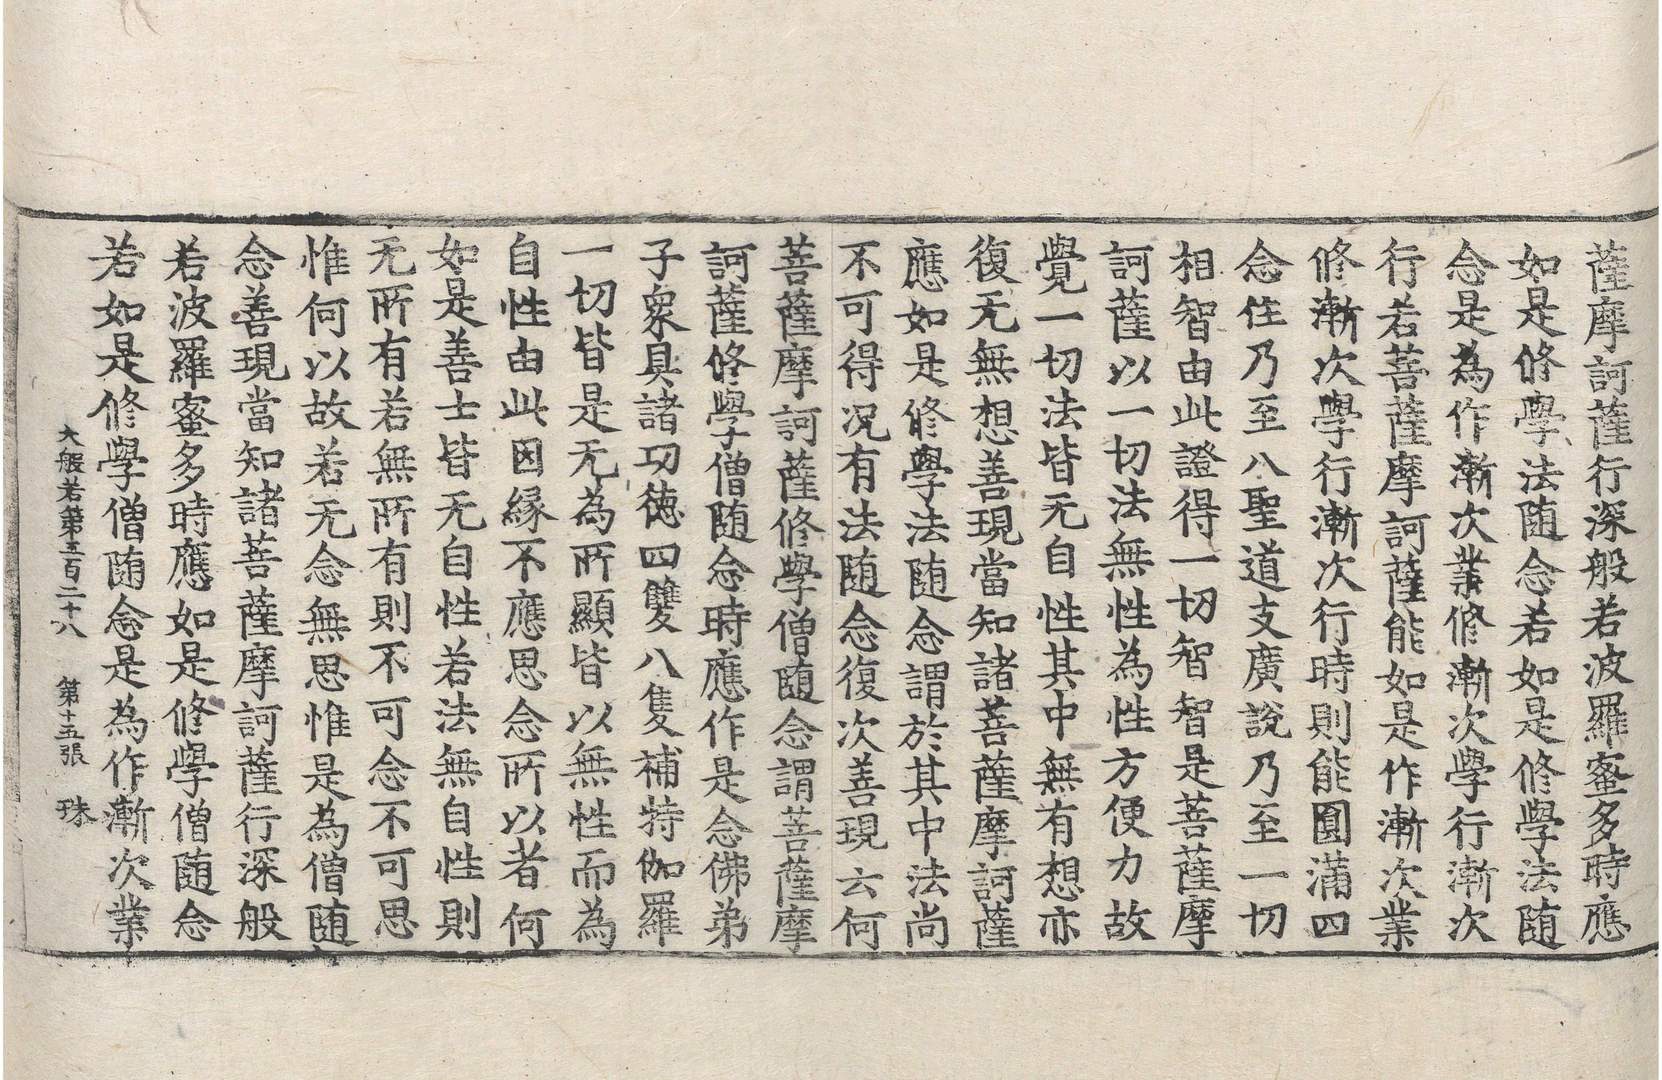 薩摩訶薩行深般若波羅蜜多時應
如是修學法随念若如是修學法随
念是為作漸次業修漸次學行漸次
行若菩薩摩訶薩能如是作漸次業
修漸次學行漸次行時則能圓滿四
念住乃至八聖道支廣說乃至一切
相智由此證得一切智智是菩薩摩
訶薩以一切法無性為性方便力故
覺一切法皆无自性其中無有想亦
復无無想善現當知諸菩薩摩訶薩
應如是修學法随念謂於其中法尚
不可得况有法随念復次善現云何
菩薩摩訶薩修學僧随念謂菩薩摩
訶薩修學僧随念時應作是念佛弟
子衆具諸功德四雙八隻補特伽羅
一切皆是无為所顯皆以無性而為
自性由此因緣不應思念所以者何
如是善士皆无自性若法無自性則
无所有若無所有則不可念不可思
惟何以故若无念無思惟是為僧随
念善現當知諸菩薩摩訶薩行深般
若波羅蜜多時應如是修學僧随念
若如是修學僧随念是為作漸次業
大般若第五百二十八 第十五張 珠